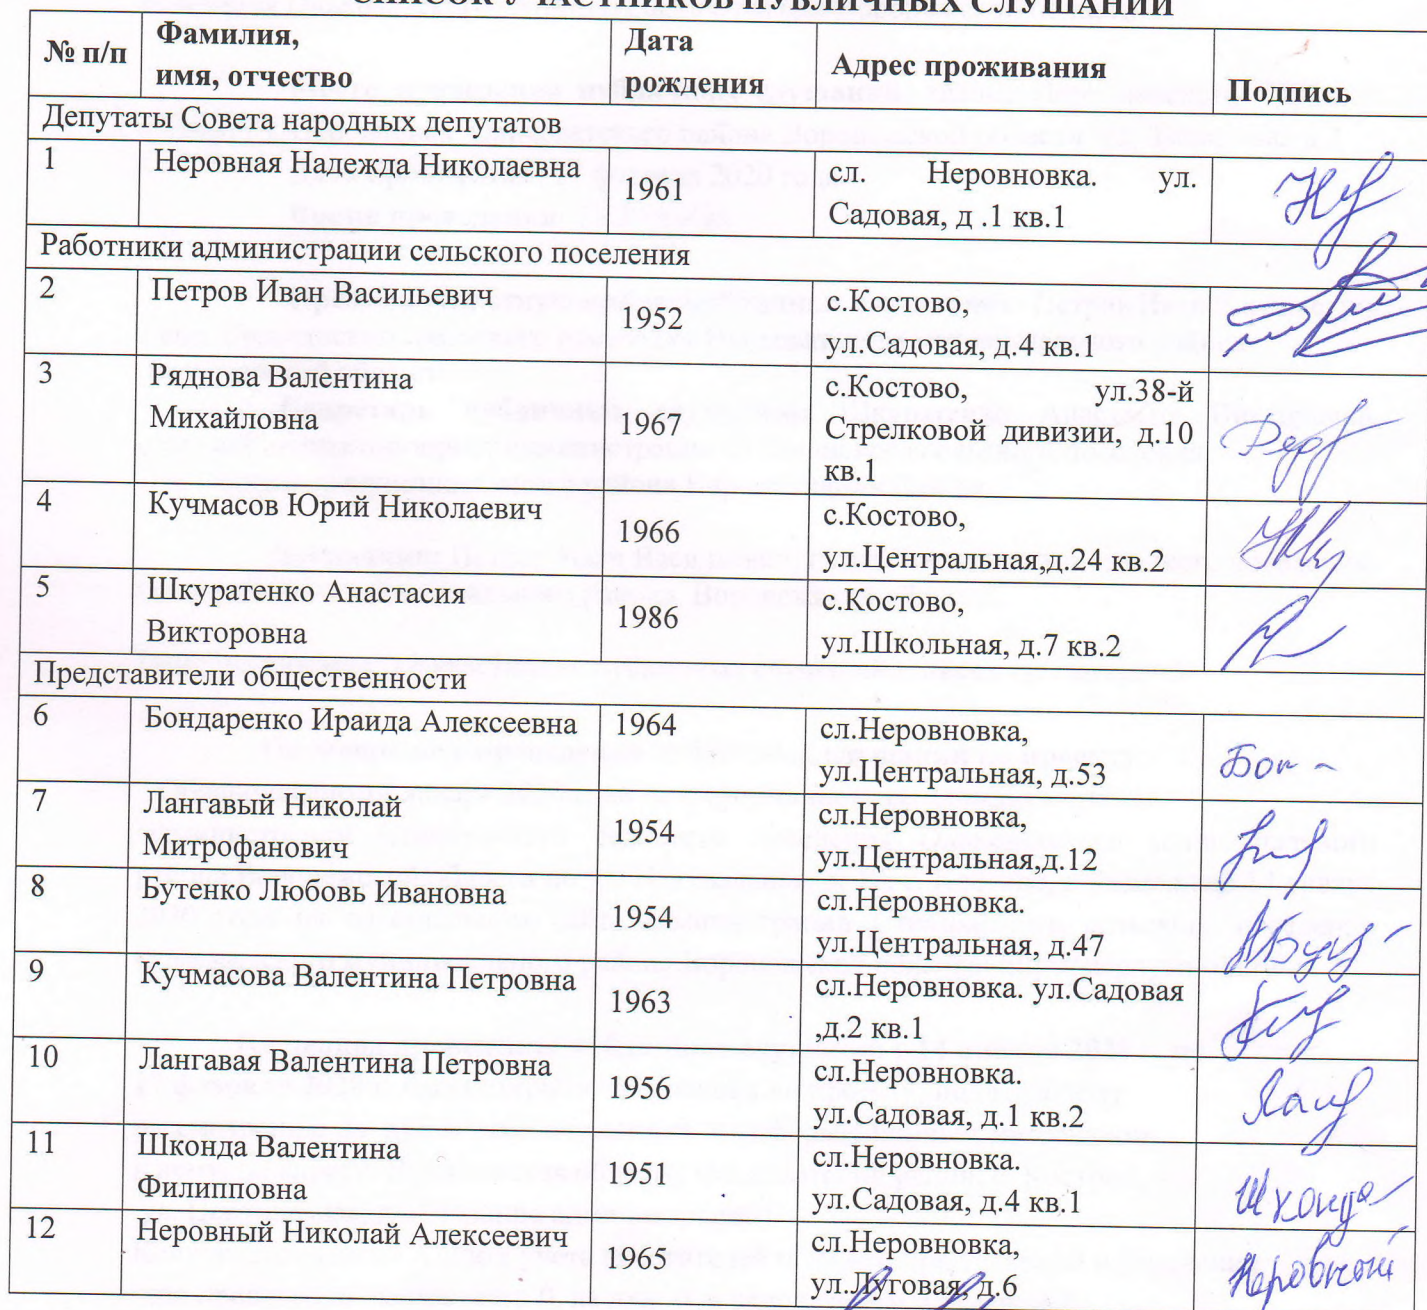 СПИСОК УЧАСТНИКОВ ПУБЛИЧНЫХ СЛУШАНИЙ
№ п/п
Фамилия,
имя, отчество
Дата
рождения
Адрес проживания
Подпись
Депутаты Совета народных депутатов
1
Неровная Надежда Николаевна
1961
сл. Неровновка. ул.
Садовая, д .1 кв.1
Работники администрации сельского поселения
2
Петров Иван Васильевич
1952
с.Костово,
ул.Садовая, д.4 кв.1
3
Ряднова Валентина
Михайловна
1967
с.Костово, ул.38-й
Стрелковой дивизии, д.10
кв.1
4
Кучмасов Юрий Николаевич
1966
с.Костово,
ул.Центральная,д.24 кв.2
5
Шкуратенко Анастасия
Викторовна
1986
с.Костово,
ул.Школьная, д.7 кв.2
Представители общественности
6
Бондаренко Ираида Алексеевна
1964
сл.Неровновка,
ул.Центральная, д.53
7
Лангавый Николай
Митрофанович
1954
сл.Неровновка,
ул.Центральная,д.12
8
Бутенко Любовь Ивановна
1954
сл.Неровновка.
ул.Центральная, д.47
9
Кучмасова Валентина Петровна
1963
сл.Неровновка. ул.Садовая
,д.2 кв.1
10
Лангавая Валентина Петровна
1956
сл.Неровновка.
ул.Садовая, д.1 кв.2
11
Шконда Валентина
Филипповна
1951
сл.Неровновка.
ул.Садовая, д.4 кв.1
Шконда
12
Неровный Николай Алексеевич
1965
сл.Неровновка,
ул.Луговая, д.6
Неровный